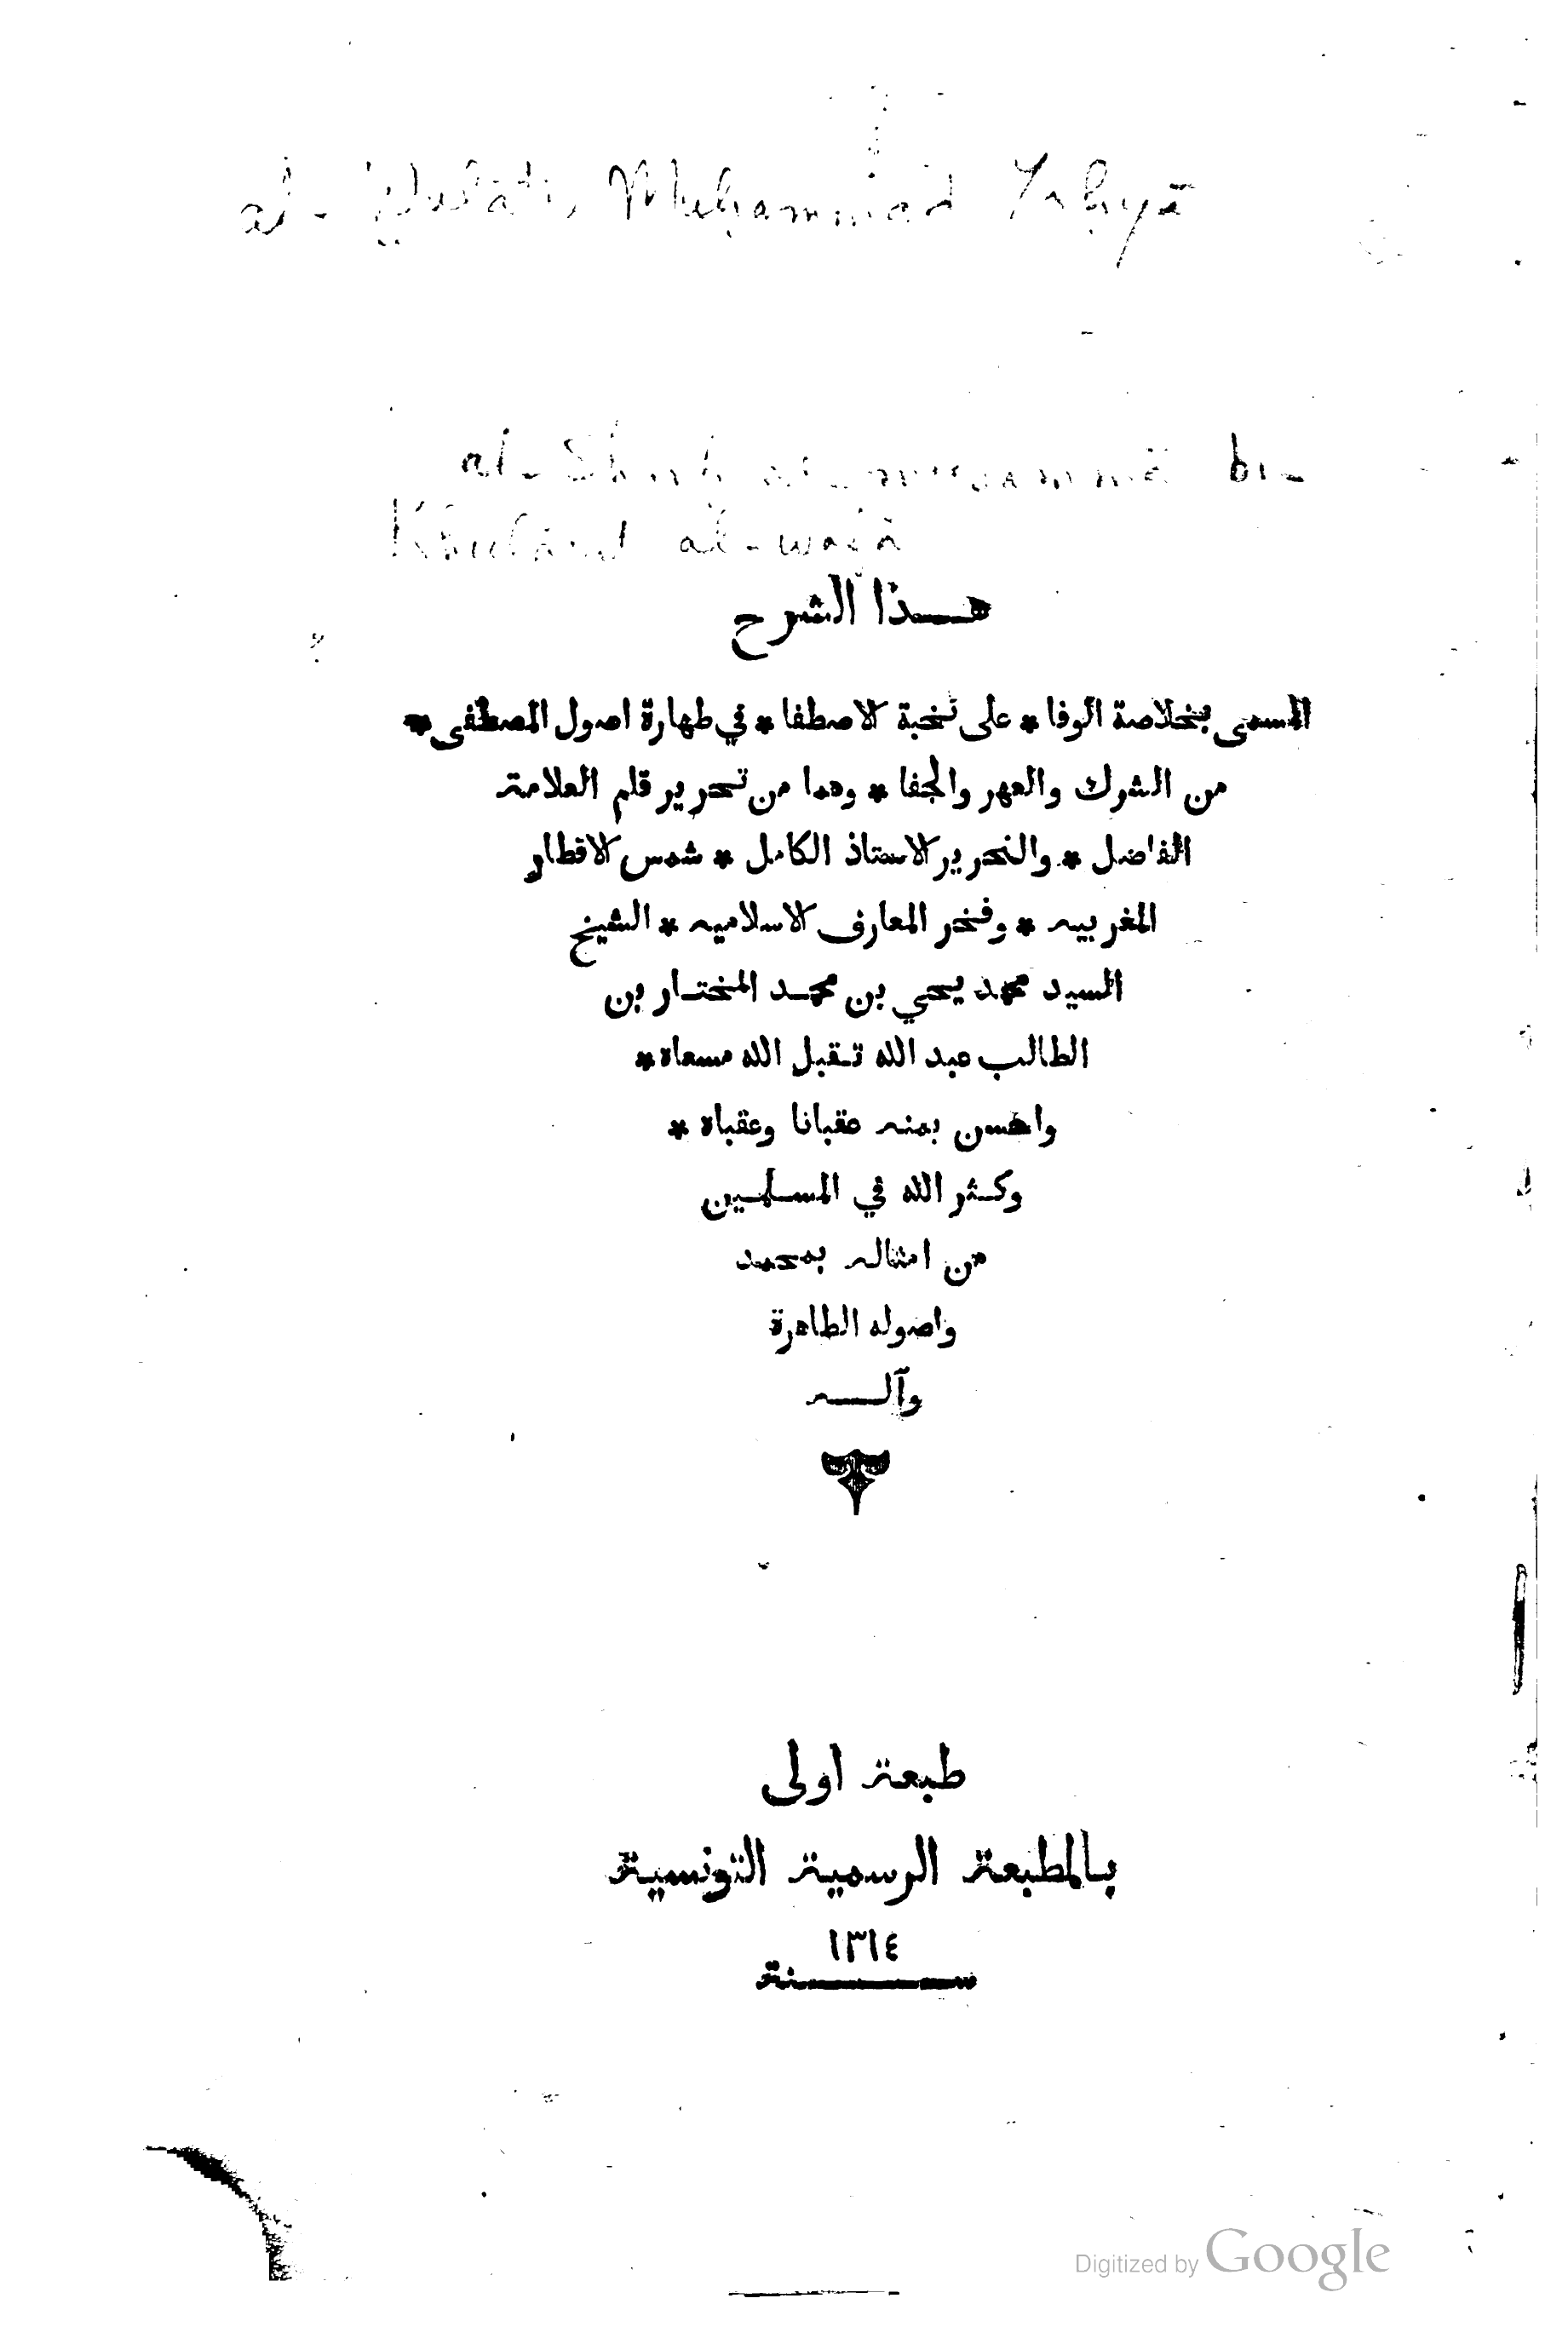 al-Wulātī, Muḥammad Yaḥyā
al-Sharḥ al-musammá bi-
Khulāṣat al-wafā
هـذا الشرح
المسمى بخلاصة الوفا * على نخبة الاصطفا * في طهارة اصول المصطفى *
من الشرك والعهر والجفا * وهما من تحرير قلم العلامة
الفاضل * والنحرير الاستاذ الكامل * شمس الاقطار
المغربيه * وفخر المعارف الاسلاميه * الشيخ
السيد محمد يحي بن محمد المختار بن
الطالب عبد الله تقبل الله مسعاه *
واحسن بمنه عقبانا وعقباه *
وكثر الله في المسلمين
من امثاله بمحمد
واصوله الطاهرة
وآله
طبعة اولى
بالمطبعة الرسمية التونسية
١٣١٤
سنة
Digitized by Google